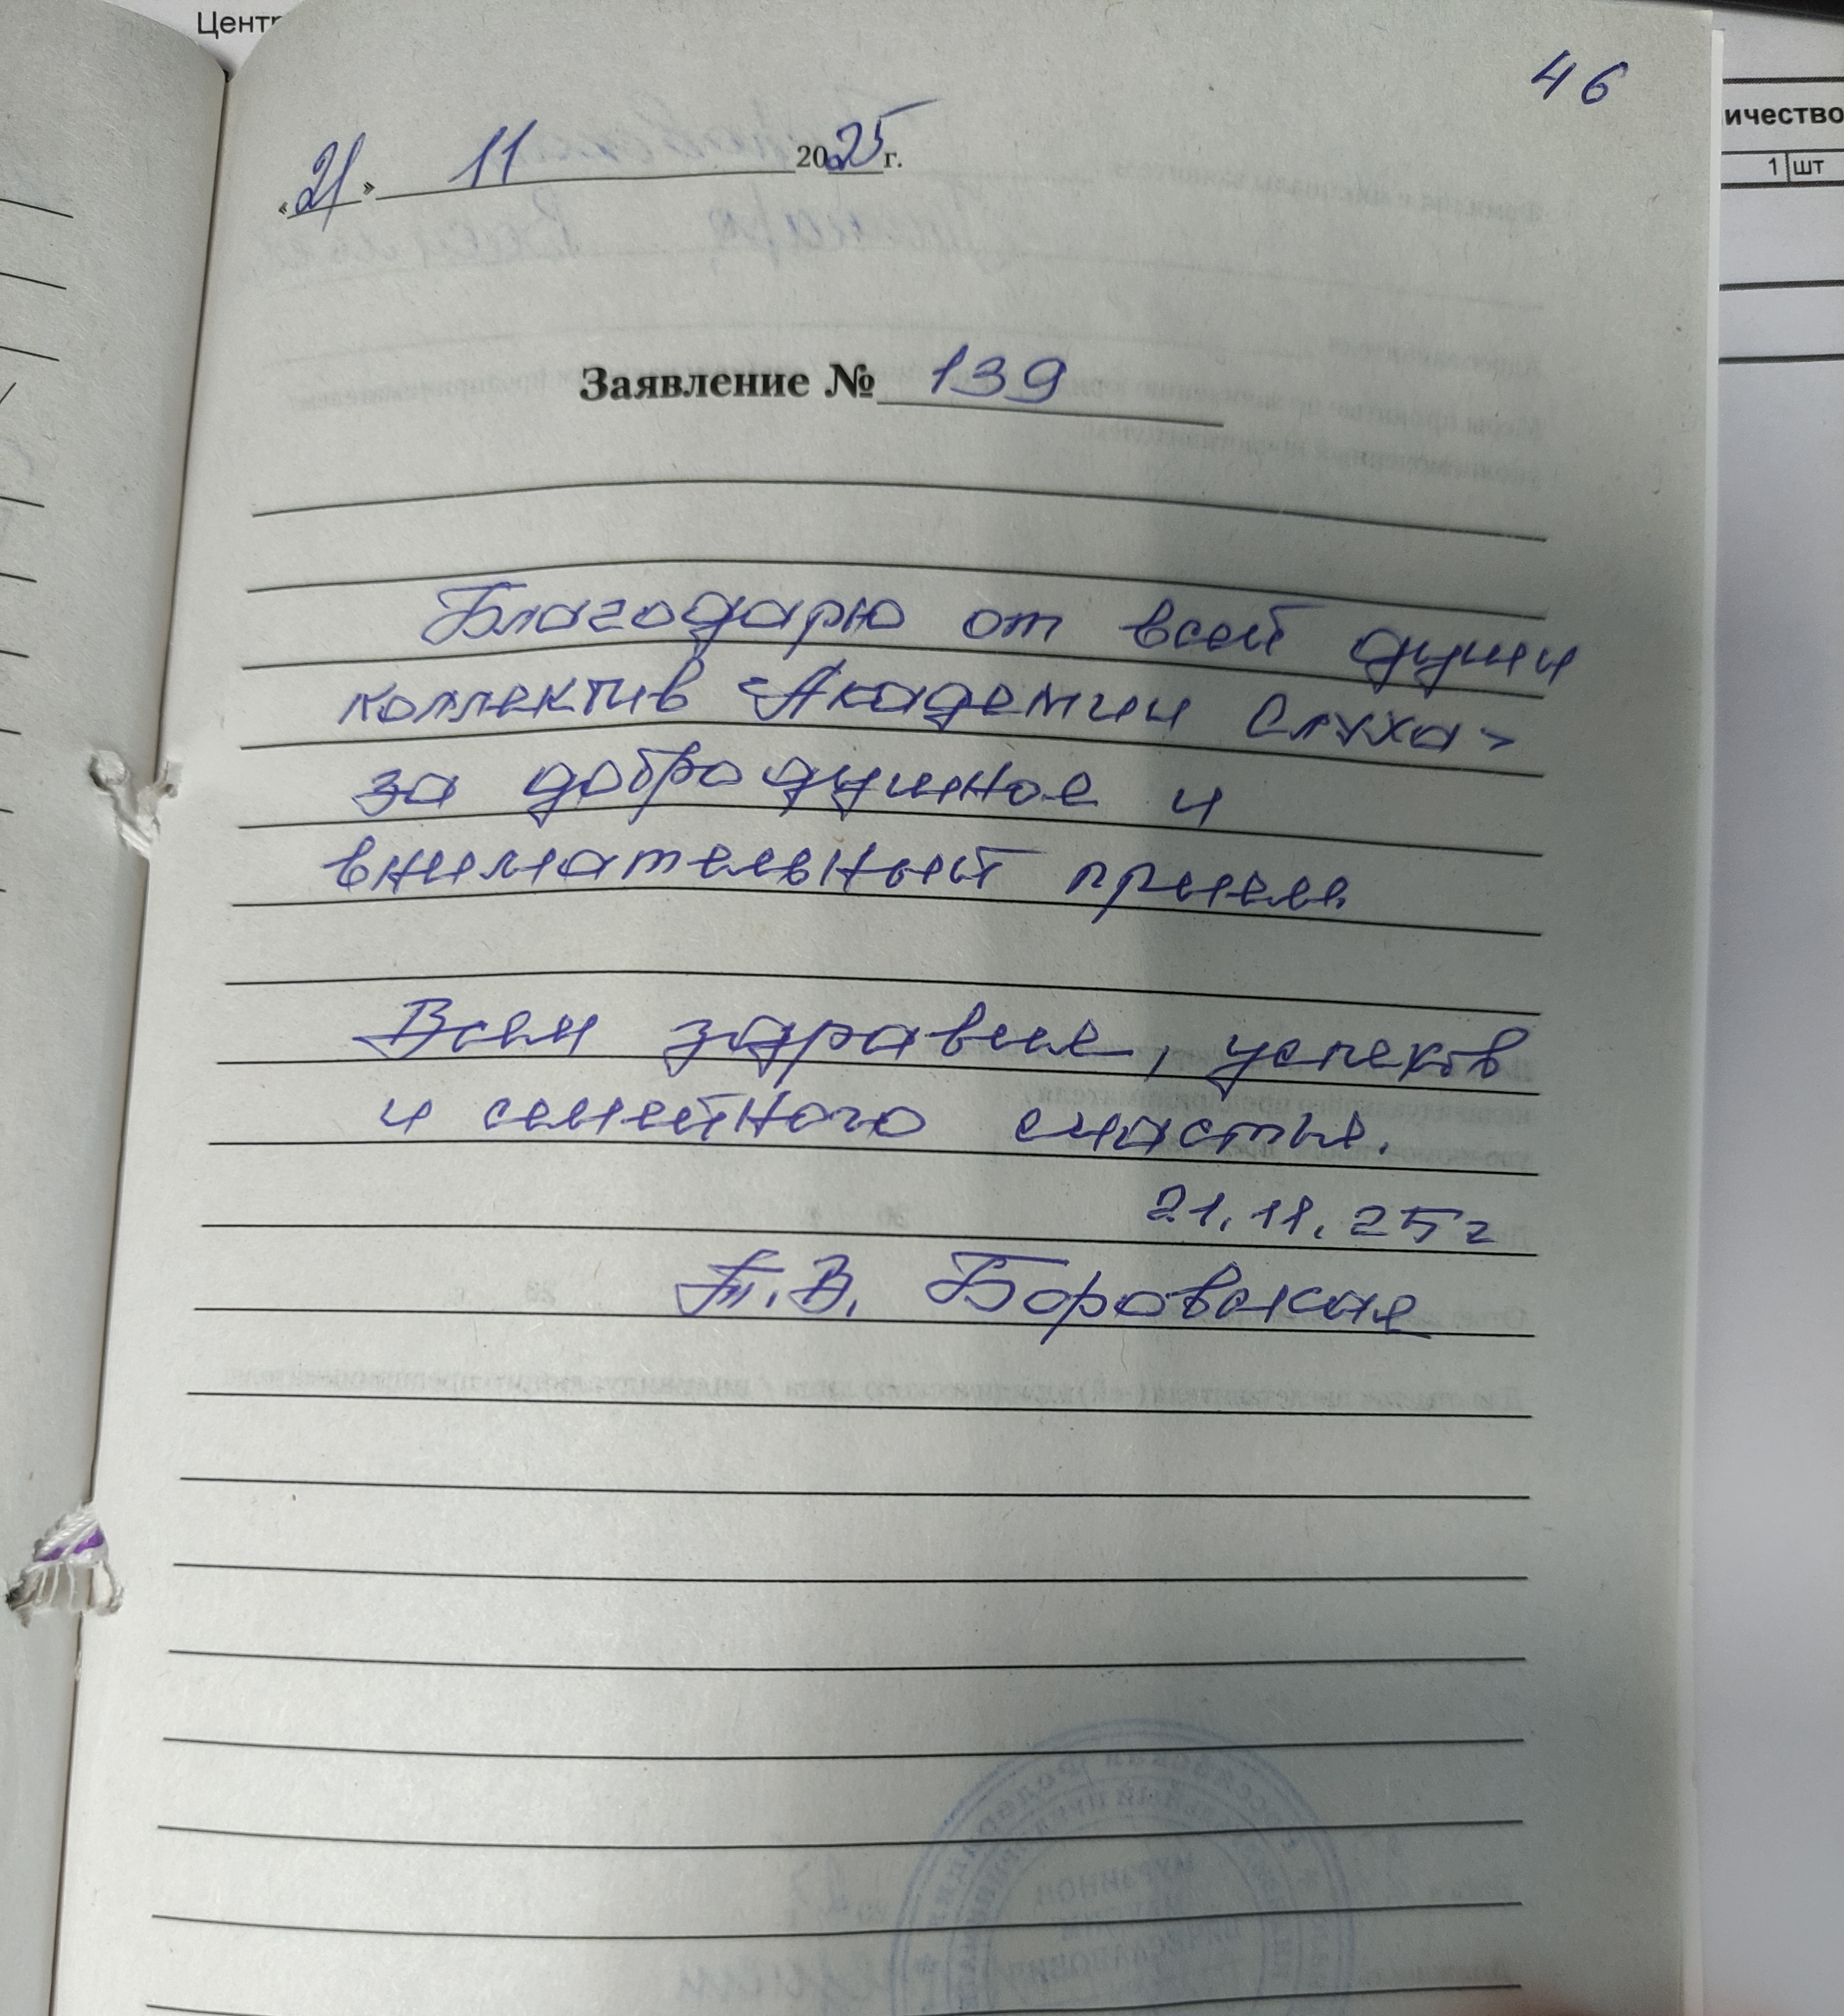 Центр
46
ичество
1 шт
«21» 11 2025 г.
Заявление № 139
Благодарю от всей души
коллектив «Академии Слуха»
за добродушное и
внимательный прием.
Всем здравие, успехов
и семейного счастья.
21.11.25г
Т.В. Боровская